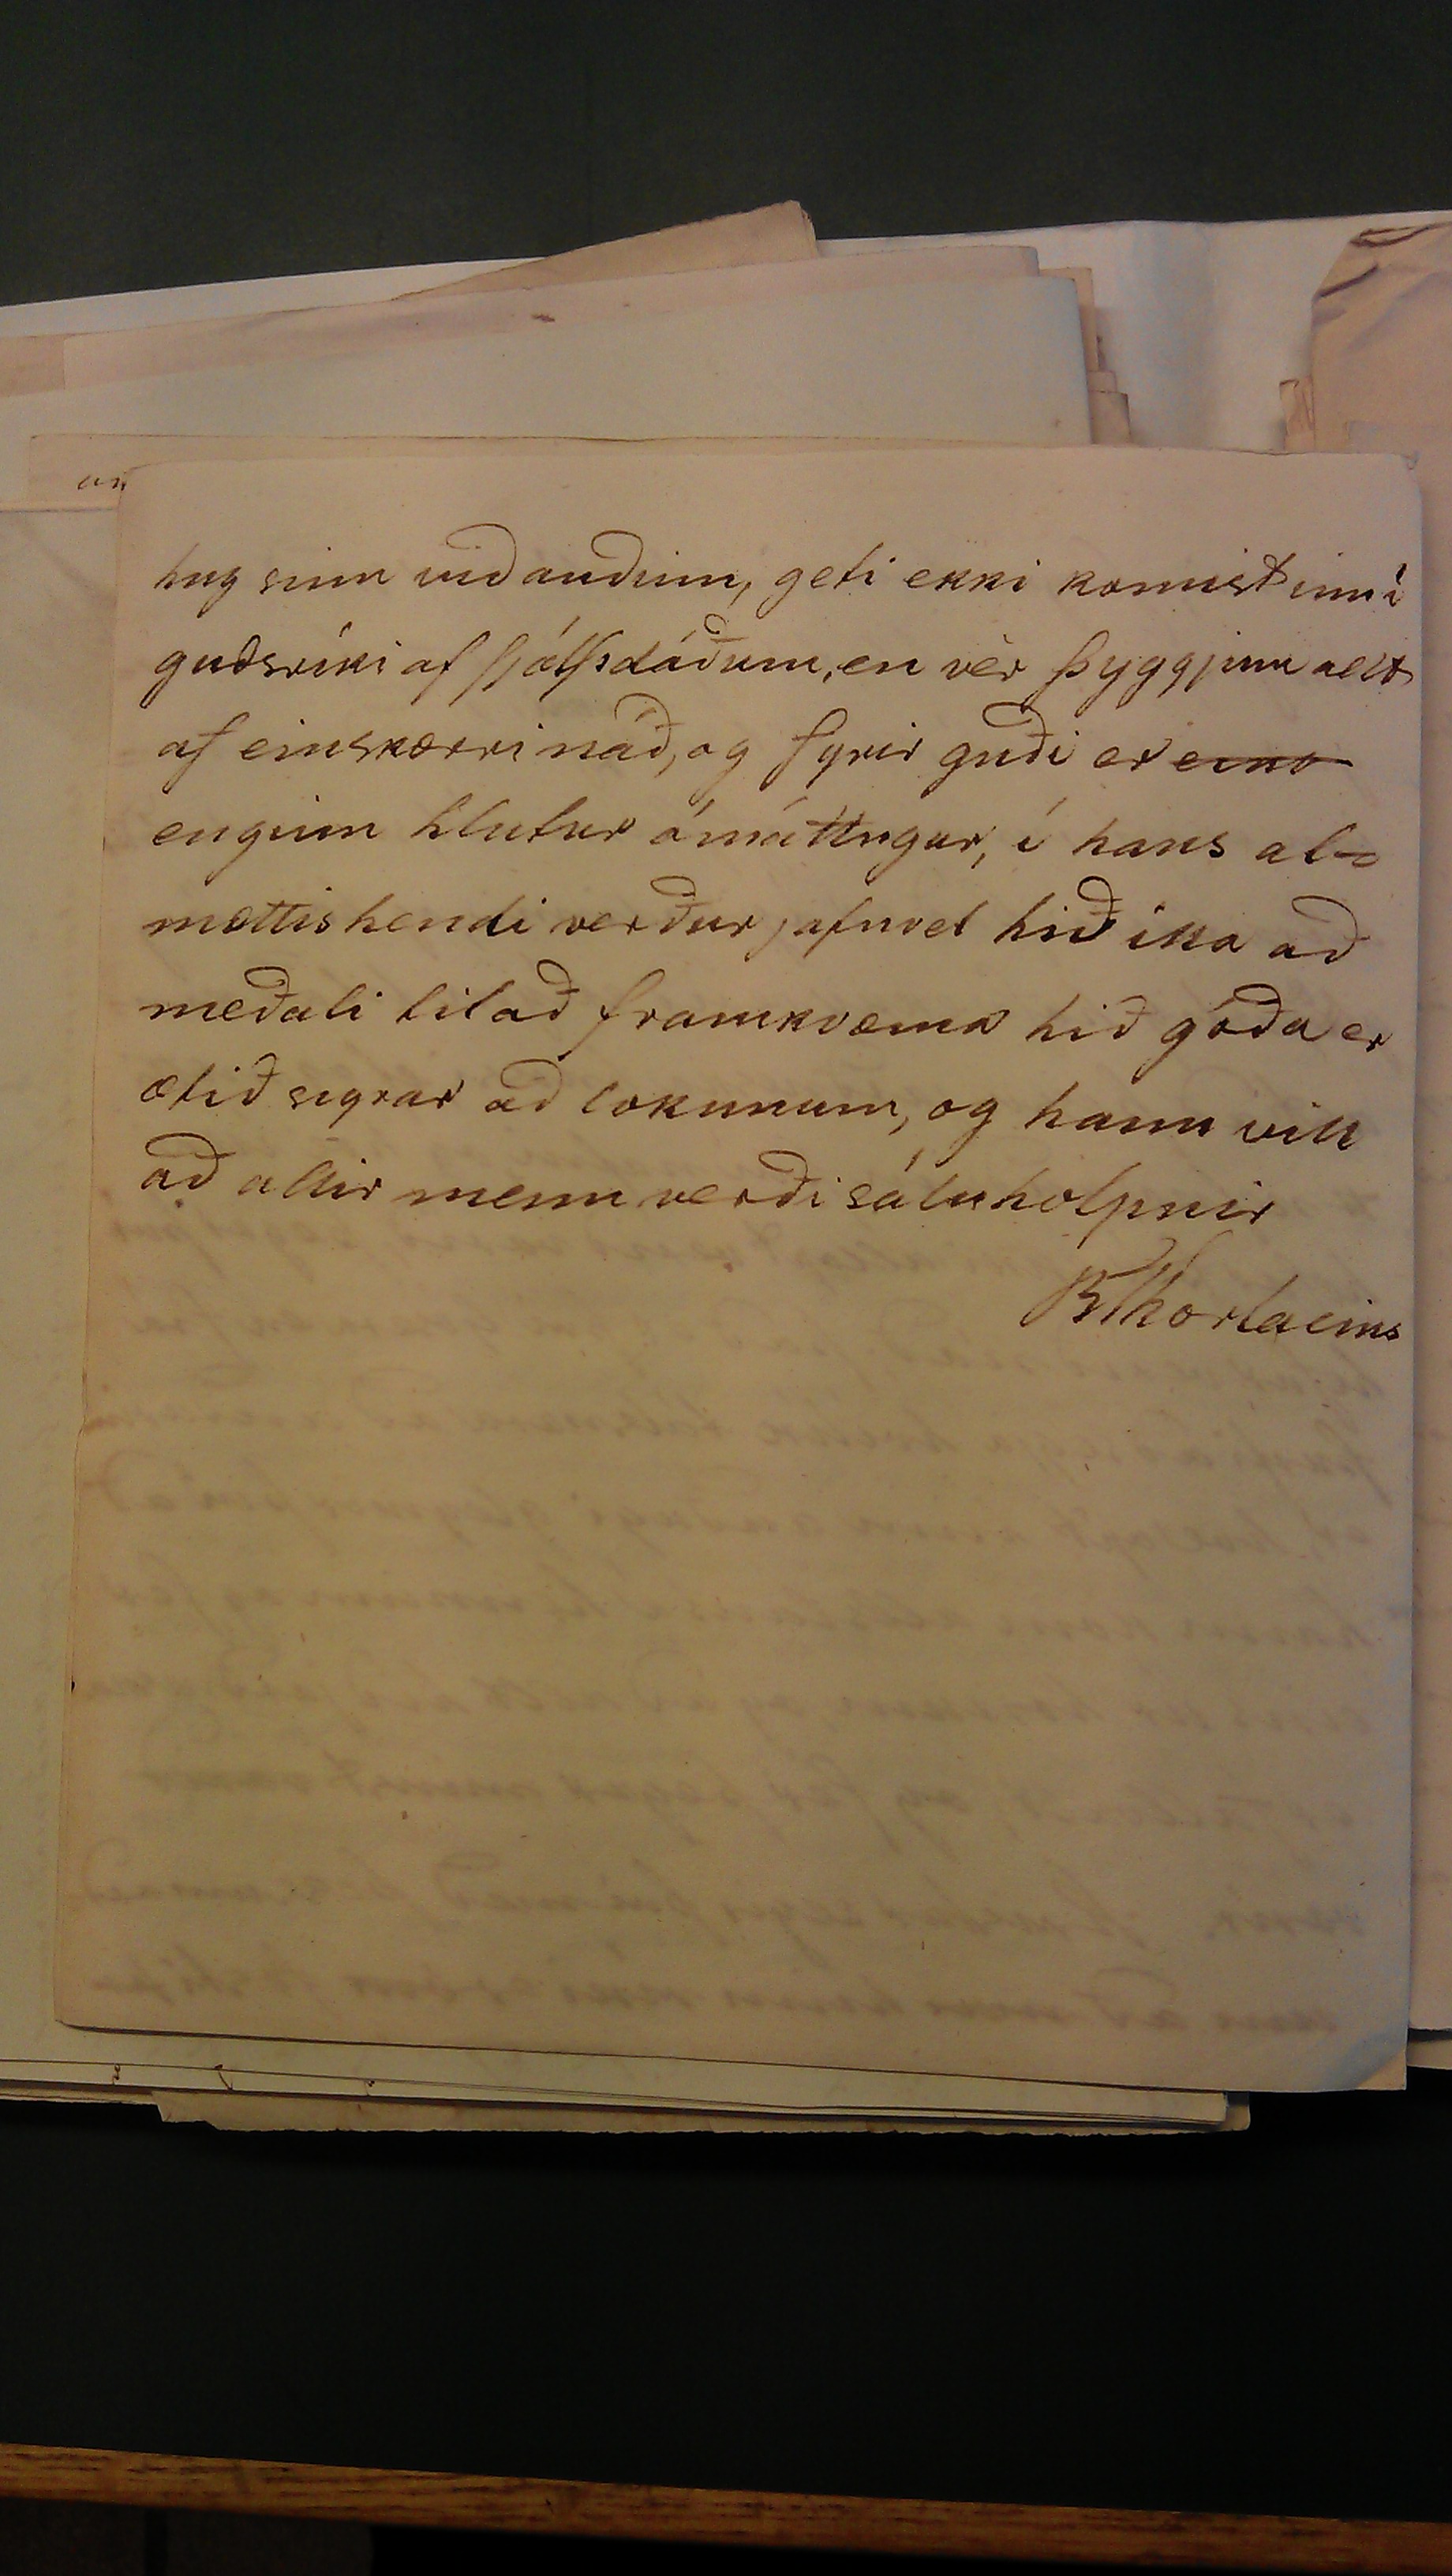 hug sinn við auðinn, geti ekki komist inn í
guðsríki af sjálfsdáðum, en vèr þyggjum allt
af einskærri náð, og fyrir guði er
enginn hlutur ómáttugur, í hans al=
mættis hendi verður jafnvel hið illa að
meðali til að framkvæma hið góða er
ætið sigrar að lokunum, og hann vill
að allir menn verði sáluholpnir